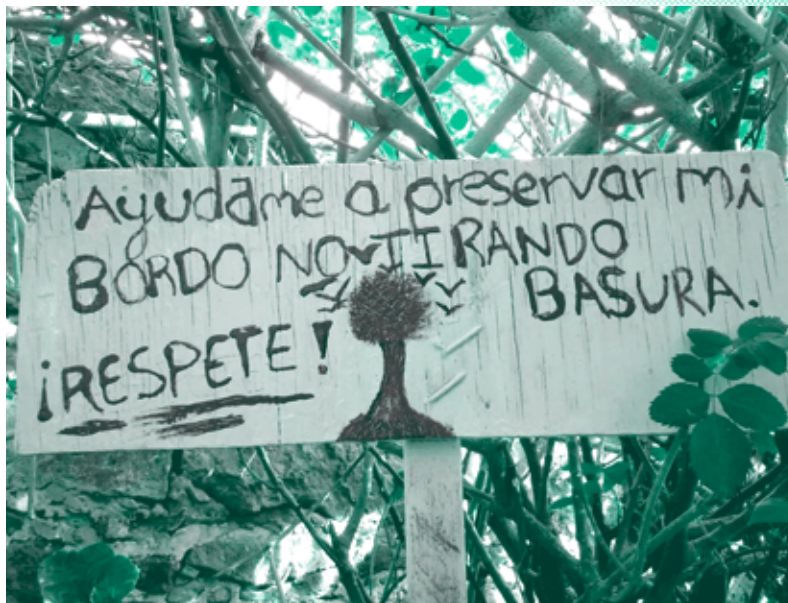 Ayudame a preservar mi
BORDO NO TIRANDO
BASURA.
¡RESPETE!